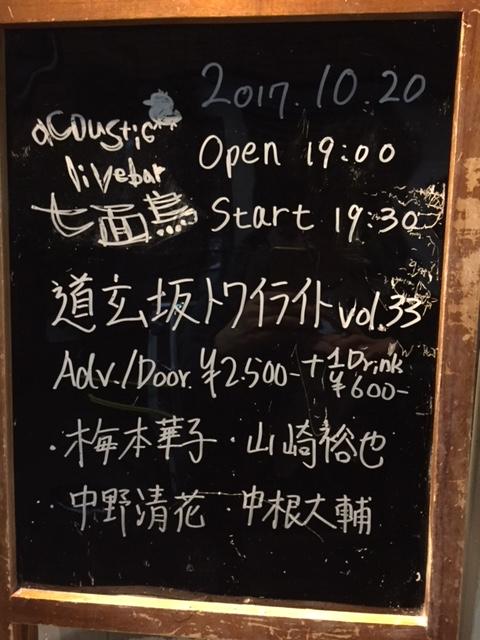 2017.10.20
acoustic
livebar
七面鳥
Open 19:00
Start 19:30
道玄坂トワイライト vol.33
Adv./Door ¥2500- +1Drink ¥600-
・梅本華子 ・山崎裕也
・中野清花 ・中根大輔